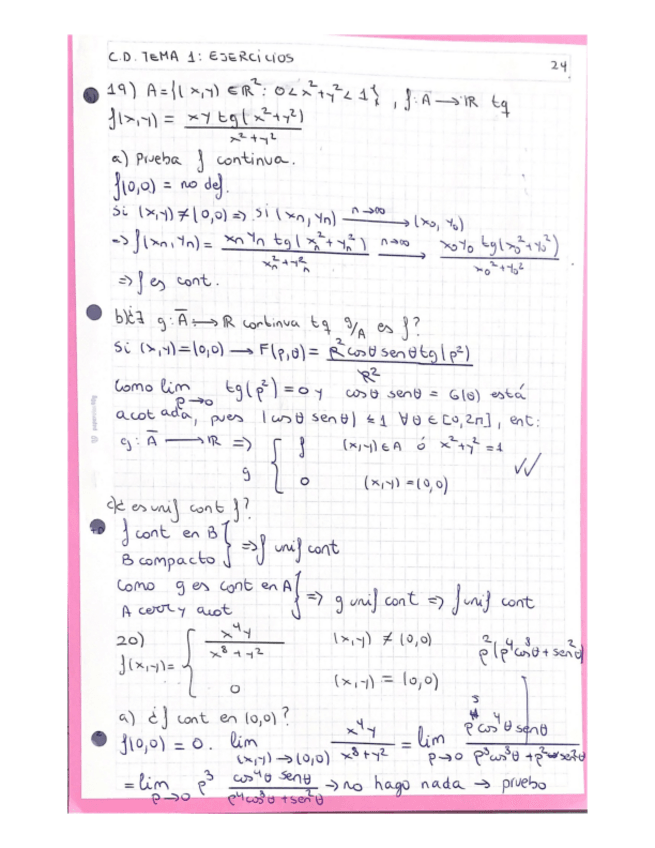 C.D. TEMA 1: EJERCICIOS 24
19) A={(x,y) ∈ R²: 0<x²+y²<1}, f: A → R tq
f(x,y) = xy tg(x²+y²) / x²+y²
a) Prueba f continua.
f(0,0) = no def.
Si (x,y) ≠ (0,0) => si (xn, yn) n→∞ → (x0, y0)
=> f(xn, yn) = xn yn tg(xn²+yn²) / xn²+yn² n→∞ → x0 y0 tg(x0²+y0²) / x0²+y0²
=> f es cont.
b) ¿∃ g: A̅ → R continua tq g/A es f?
Si (x,y)=(0,0) → F(ρ,θ) = R² cosθ senθ tg(ρ²) / R²
Como lim ρ→0 tg(ρ²) = 0 y cosθ senθ = G(θ) está
acotada, pues |cosθ senθ| ≤ 1 ∀θ ∈ [0,2π], ent:
g: A̅ → R => g { f (x,y) ∈ A ó x²+y²=1
0 (x,y) = (0,0)
c) ¿es unif cont f?
f cont en B
B compacto } => f unif cont
Como g es cont en A
A cerr y acot } => g unif cont => f unif cont
20) f(x,y) = { x⁴y / x⁸+y² (x,y) ≠ (0,0)
0 (x,y) = (0,0)
ρ²(ρ⁴cos⁸θ + sen²θ)
a) ¿f cont en (0,0)?
f(0,0) = 0. lim (x,y)→(0,0) x⁴y / x⁸+y² = lim ρ→0 ρ⁵cos⁴θ senθ / ρ⁸cos⁸θ + ρ² sen²θ
= lim ρ→0 ρ³ cos⁴θ senθ / ρ⁴cos⁸θ + sen²θ → no hago nada → pruebo